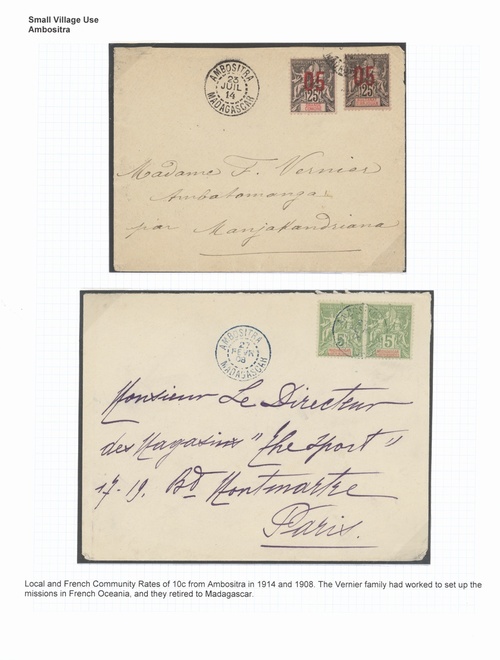 Small Village Use
Ambositra
AMBOSITRA
23
JUIL
14
MADAGASCAR
05
25
05
25
Madame F. Vernier
Ambatomanga
par Manjakandriana
AMBOSITRA
27
FEVR
08
MADAGASCAR
5
5
Monsieur Le Directeur
des Magasins "The Sport"
17-19. Bd Montmartre
Paris.
Local and French Community Rates of 10c from Ambositra in 1914 and 1908. The Vernier family had worked to set up the
missions in French Oceania, and they retired to Madagascar.